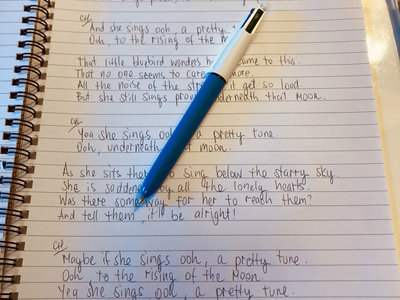 CH
And she sings ooh, a pretty t
Ooh, to the rising of the m
That little bluebird wonders h came to this.
That no one seems to care more.
All the noise of the str it get so loud.
But she still sings pro underneath that Moon.
CH
Yea she sings ooh, a pretty tune.
Ooh, underneath moon.
As she sits the to sing below the starry sky.
She is saddened by all the lonely hearts.
Was there some way for her to reach them?
And tell them, it'll be alright!
CH
Maybe if she sings ooh, a pretty tune.
Ooh, to the rising of the Moon.
Yea she sings ooh, a pretty tune.